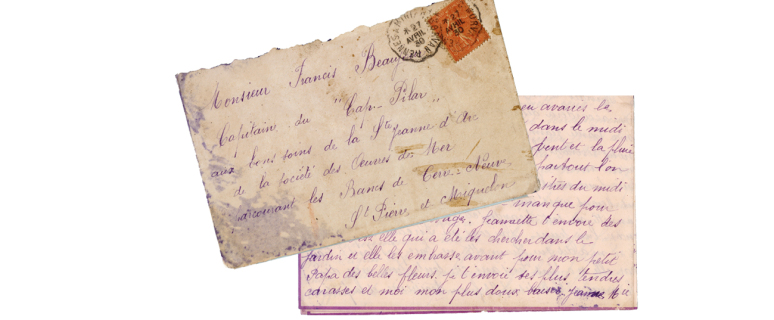 27
AVRIL
30
Monsieur Francis
Capitain du "Cap-Pilar"
aux bons soins de la Ste Jeanne d'Arc
de la société des Oeuvres de Mer
parcourant les Bancs de Terre-Neuve
St Pierre et Miquelon
le
dans le midi
vent et la pluie
partout l'on
du midi
manque pour
Jeannette t'envoie des
elle qui a été les chercher dans le
jardin et elle les embrasse avant pour mon petit
Papa des belles fleurs, je t'envoie ses plus tendres
caresses et moi mon plus doux baiser